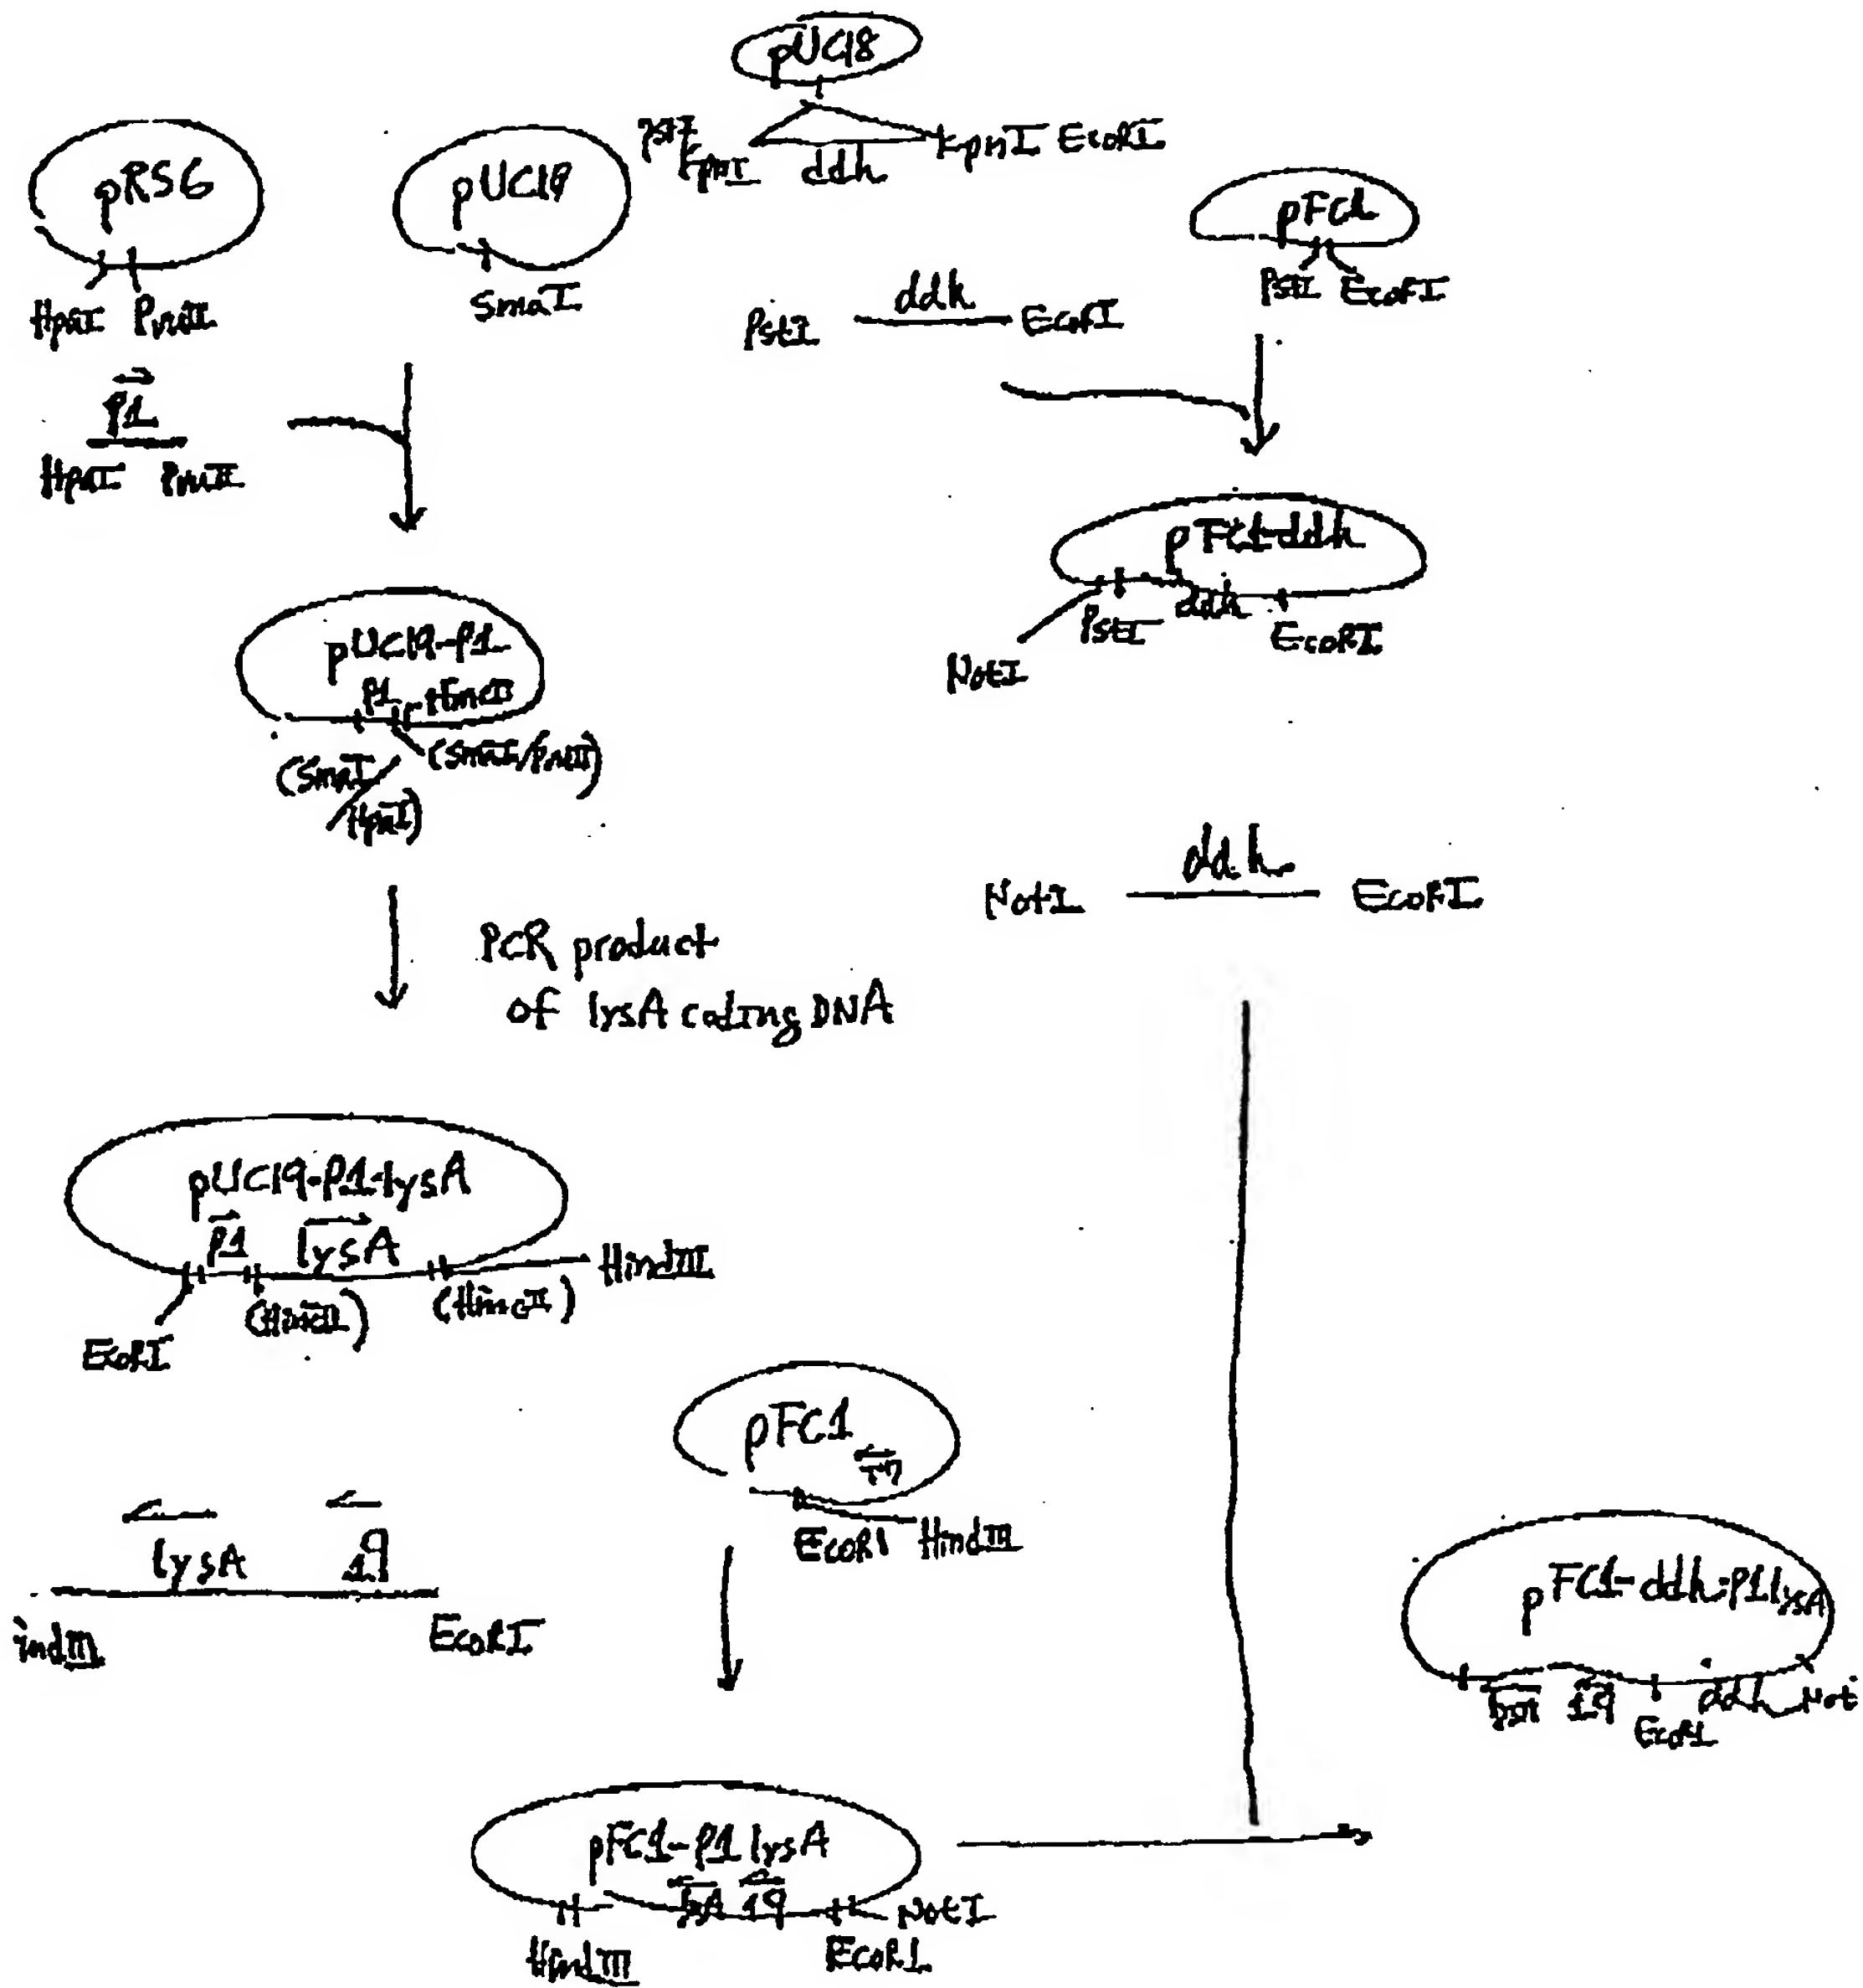 pUC18
PstI
KpnI
ddh
KpnI EcoRI
pRS6
HpaI PvuII
pUC19
SmaI
pFC1
PstI EcoRI
PstI ddh EcoRI
P1
HpaI PvuII
pFC1-ddh
NotI PstI ddh EcoRI
pUC19-P1
P1 HincII
(SmaI/
HpaI)
(SmaI/PvuII)
NotI ddh EcoRI
PCR product
of lysA coding DNA
pUC19-P1-lysA
P1 lysA
EcoRI (HincII) (HincII) HindIII
pFC1
EcoRI HindIII
lysA
indIII EcoRI
pFC1-ddh:P1lysA
EcoRI
ddh Not
pFC1-P1 lysA
lysA
HindIII EcoRI NotI